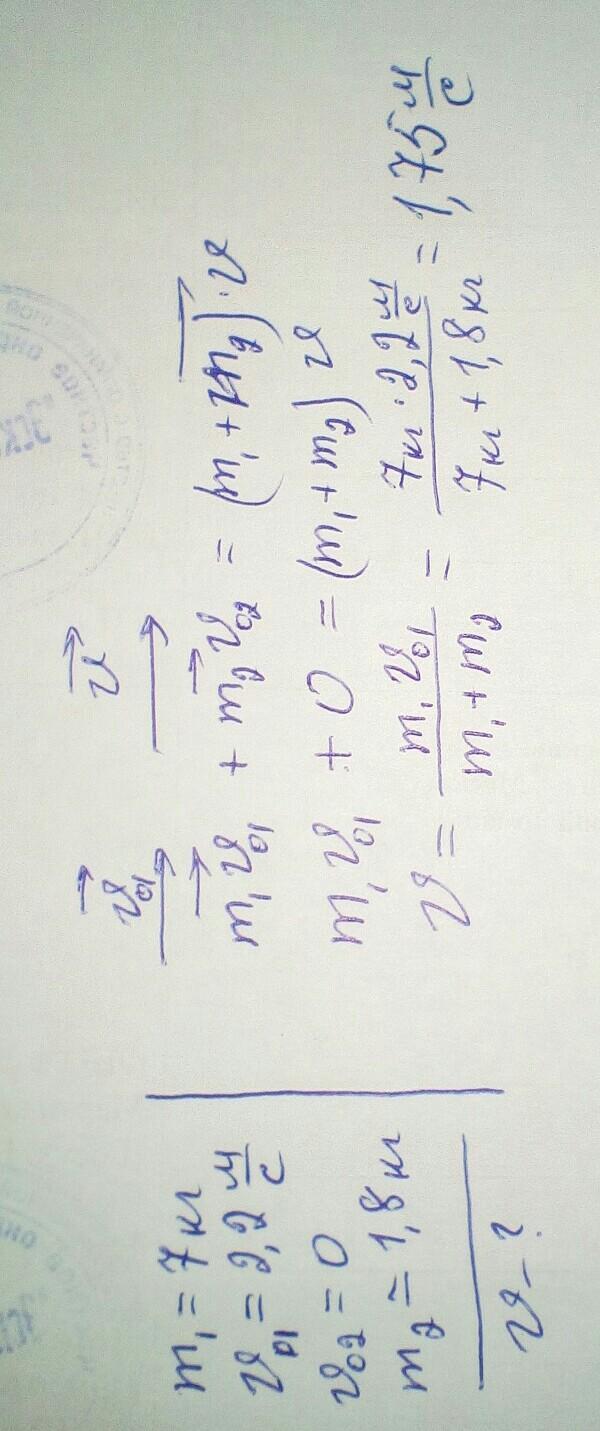 m₁ = 7 кг
υ₀₁ = 2,2 м/с
υ₀₂ = 0
m₂ = 1,8 кг
υ - ?
υ⃗₀₁ υ⃗
m₁υ⃗₀₁ + m₂υ⃗₀₂ = (m₁ + m₂)·υ⃗
m₁υ₀₁ + 0 = (m₁ + m₂)υ
υ = m₁υ₀₁ / (m₁ + m₂) = 7 кг · 2,2 м/с / (7 кг + 1,8 кг) = 1,75 м/с